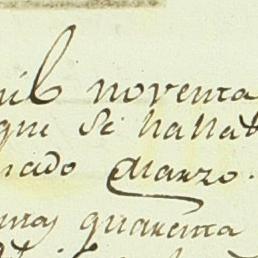 mil noventa
que se hallab
nado Marzo.
mas quarenta